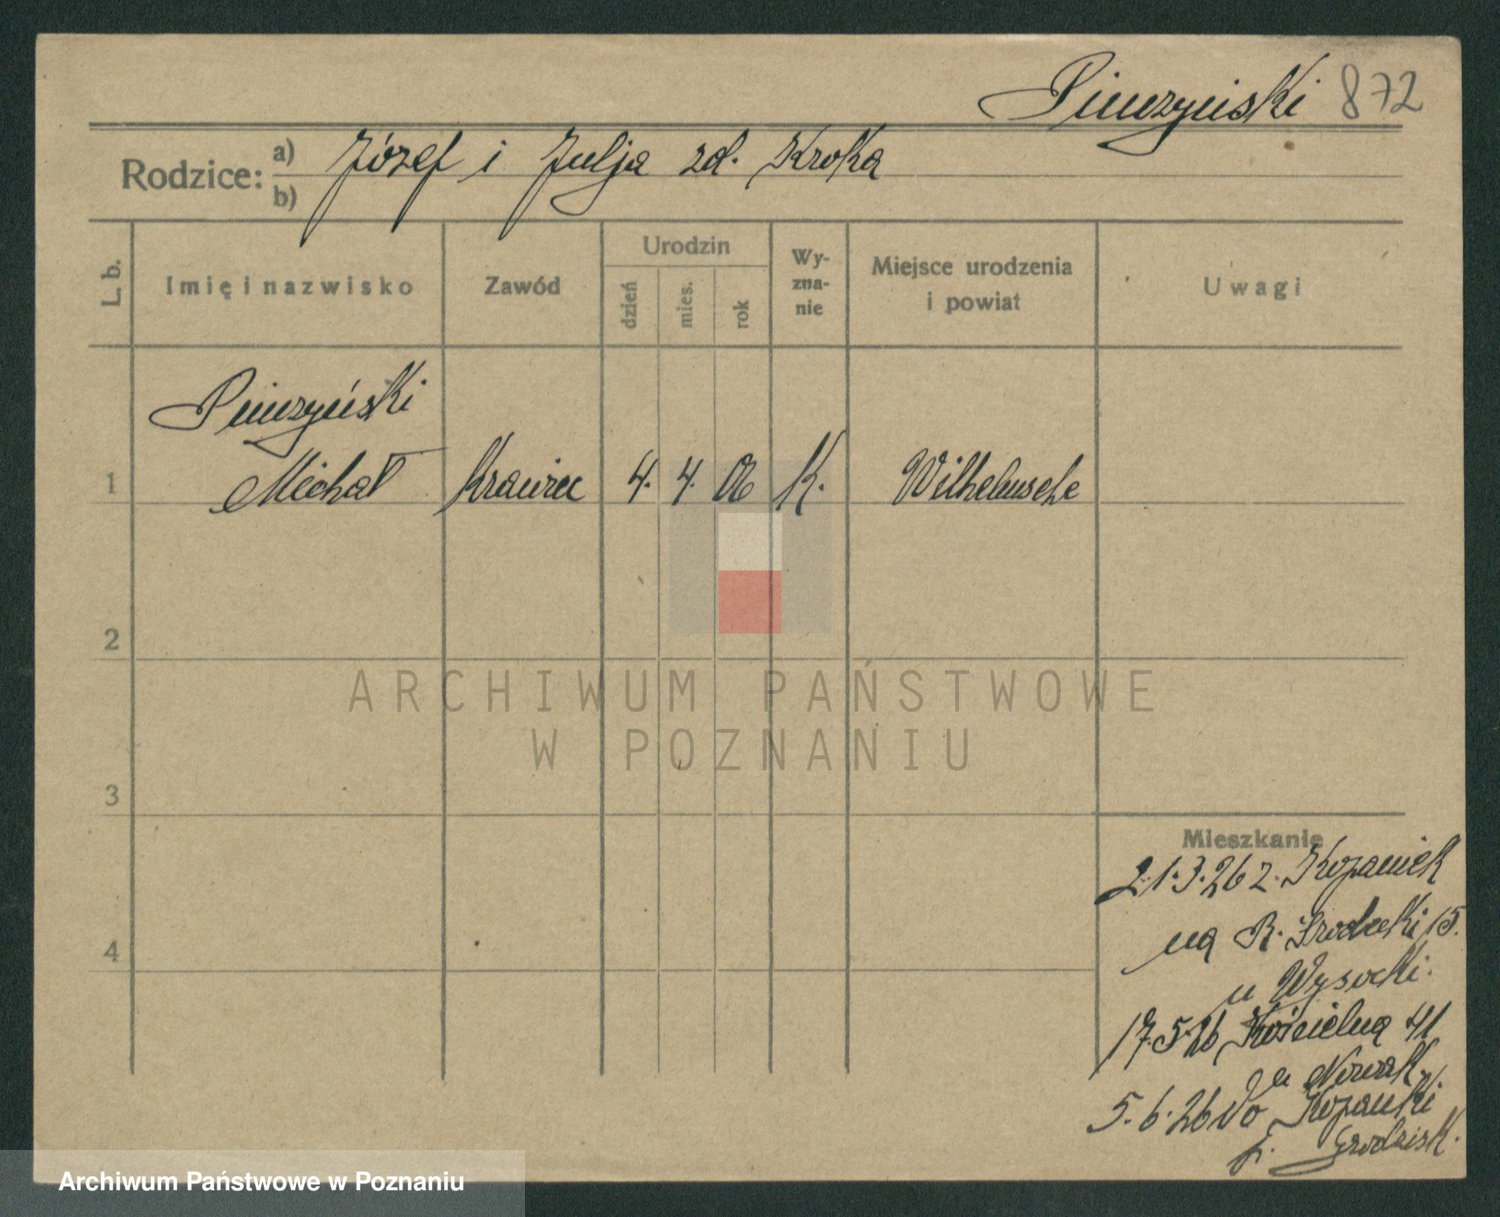 872
Rodzice: a) Józef i Julja zd. Kroka
b)
L. b.
Imię i nazwisko
Zawód
Urodzin
dzień
mies.
rok
Wy-
zna-
nie
Miejsce urodzenia
i powiat
Uwagi
1
Michał Krawiec 4. 4. 06 K.
2
3
4
Mieszkanie
21.3.26 z.
na R.
15.
u Wysocki.
17.5.26 Kościelną 41
u Nowak.
5.6.26 do
ARCHIWUM PAŃSTWOWE
W POZNANIU
Archiwum Państwowe w Poznaniu